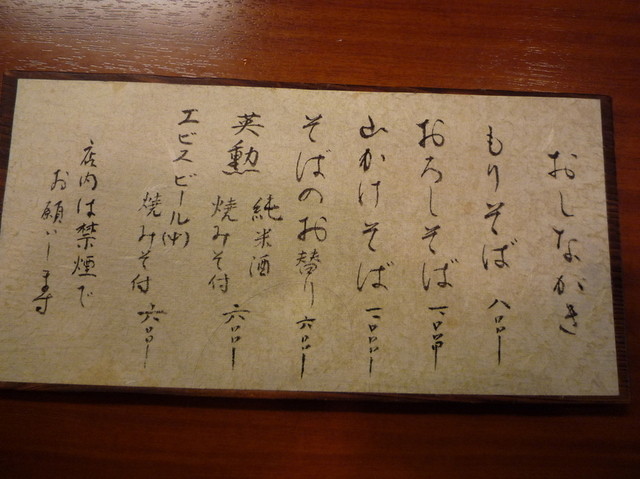 おしながき
もりそば 八〇〇ー
おろしそば
山かけそば 一〇〇〇ー
そばのお替り 六〇〇ー
英勲 純米酒
焼みそ付 六〇〇ー
エビスビール(中)
焼みそ付 六〇〇ー
店内は禁煙で
お願いしま寿